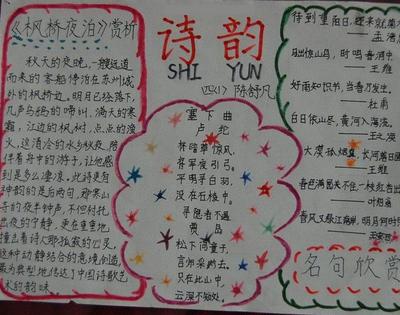 《枫桥夜泊》赏析
秋天的夜晚，一艘远道
而来的客船停泊在苏州城
外的枫桥边。明月已经落下，
几声乌鸦的啼叫，满天的寒
霜，江边的枫树，点点的渔
火，这清冷的水乡秋夜，陪
伴着舟中的游子，让他感
到是多么凄凉。此诗更有
神韵的是后两句，那寒山
寺的夜半钟声，不但衬托
出夜的宁静，更在重重地
撞击着诗人那孤寂的心灵，
这种动静结合的意境创造，
最为典型地传达了中国诗歌艺
术的韵味。
诗韵
SHI YUN
四(1) 陈舒凡
塞下曲
卢纶
林暗草惊风，
将军夜引弓。
平明寻白羽，
没在石棱中。
寻隐者不遇
贾岛
松下问童子，
言师采药去。
只在此山中，
云深不知处。
待到重阳日，还来就菊花
——孟浩
月出惊山鸟，时鸣春涧中
——王维
好雨知时节，当春乃发生。
——杜甫
白日依山尽，黄河入海流。
——王之涣
大漠孤烟直，长河落日圆
——王维
春色满园关不住，一枝红杏出
——叶绍翁
春风又绿江南岸，明月何时照
——王安石
名句欣赏